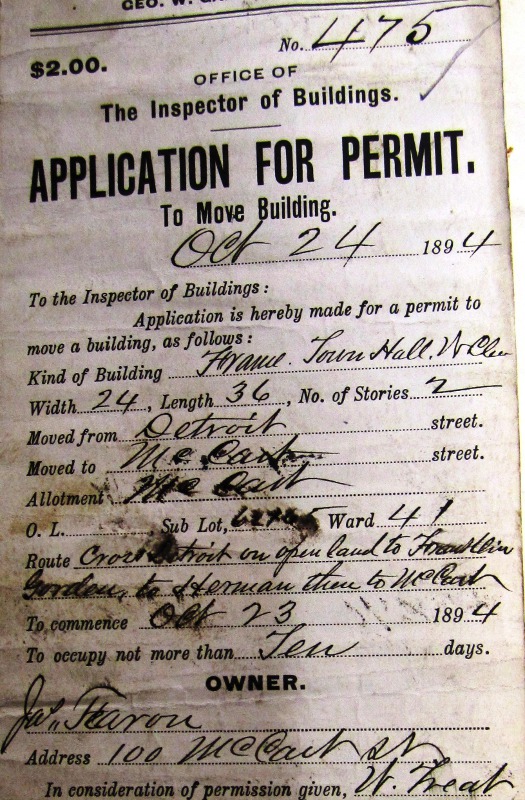 GEO. W.
No. 475
$2.00.
OFFICE OF
The Inspector of Buildings.
APPLICATION FOR PERMIT.
To Move Building.
Oct 24 1894
To the Inspector of Buildings:
Application is hereby made for a permit to
move a building, as follows:
Kind of Building Frame Town Hall. W Clev
Width 24, Length 36, No. of Stories 2
Moved from Detroit street.
Moved to McCart street.
Allotment McCart
O. L. Sub Lot, Ward 41
Route Cross Detroit on open land to Franklin
Gorden, to Herman then to McCart
To commence Oct 23 1894
To occupy not more than Ten days.
OWNER.
Jas. Fearon
Address 100 McCart St
In consideration of permission given, W. Treat